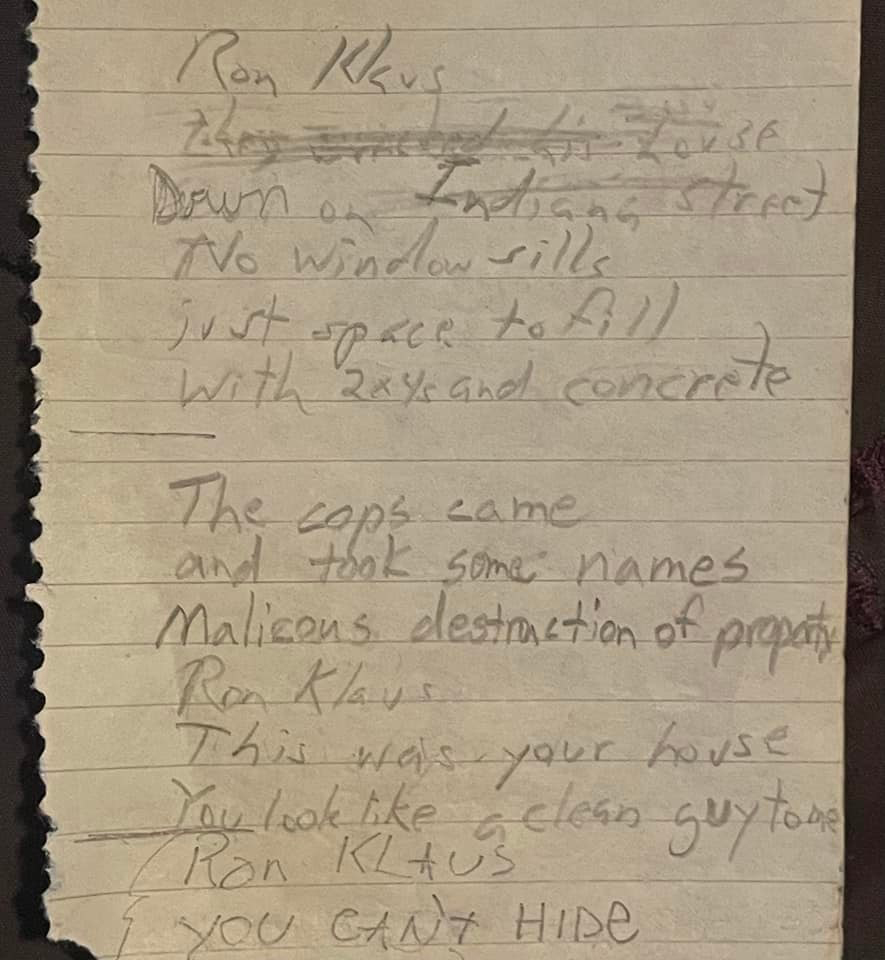 Ron Klaus
They wrecked his house
Down on Indiana street
No window sills
just space to fill
With 2x4s and concrete
The cops came
and took some names
Malicous destruction of property
Ron Klaus
This was your house
You look like a clean guy to me
Ron KLAUS
YOU CAN'T HIDE